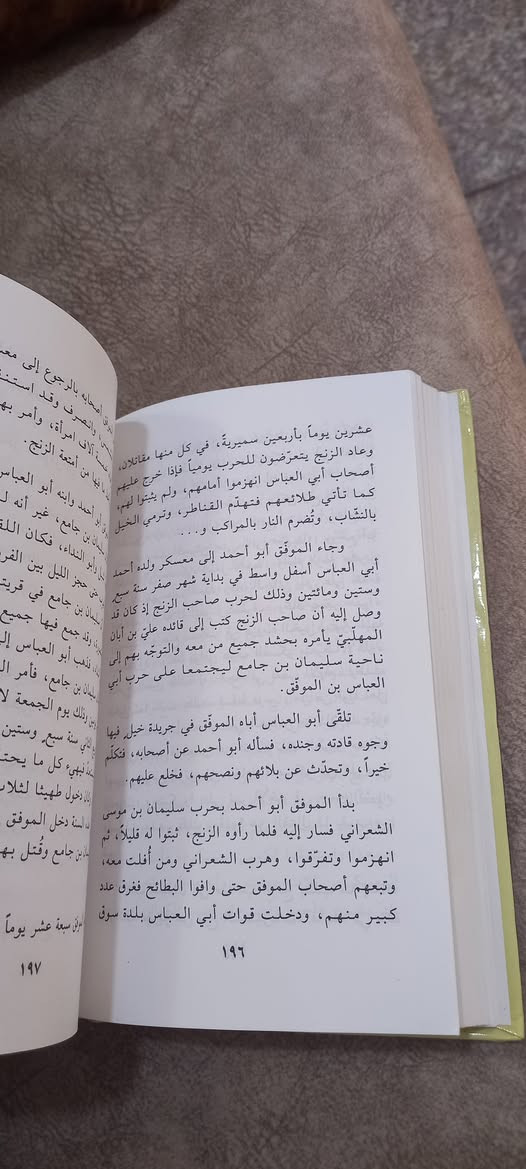 عشرين يوماً بأربعين سميريةً، في كل منها مقاتلان،
وعاد الزنج يتعرّضون للحرب يومياً فإذا خرج عليهم
أصحاب أبي العباس انهزموا أمامهم، ولم يثبتوا لهم،
كما تأتي طلائعهم فتهدّم القناطر، وترمي الخيل
بالنشّاب، وتُضرم النار بالمراكب و...
وجاء الموفّق أبو أحمد إلى معسكر ولده أحمد
أبي العباس أسفل واسط في بداية شهر صفر سنة سبع
وستين ومائتين وذلك لحرب صاحب الزنج إذ كان قد
وصل إليه أن صاحب الزنج كتب إلى قائده عليّ بن أبان
المهلّبيّ يأمره بحشد جميع من معه والتوجّه بهم إلى
ناحية سليمان بن جامع ليجتمعا على حرب أبي
العباس بن الموفّق.
تلقّى أبو العباس أباه الموفّق في جريدة خيلٍ فيها
وجوه قادته وجنده، فسأله أبو أحمد عن أصحابه، فتكلّم
خيراً، وتحدّث عن بلائهم ونصحهم، فخلع عليهم.
بدأ الموفق أبو أحمد بحرب سليمان بن موسى
الشعراني فسار إليه فلما رأوه الزنج، ثبتوا له قليلاً، ثم
انهزموا وتفرّقوا، وهرب الشعراني ومن أُفلت معه،
وتبعهم أصحاب الموفق حتى وافوا البطائح فغرق عدد
كبير منهم، ودخلت قوات أبي العباس بلدة سوق
١٩٦
أصحابه بالرجوع إلى
والتصرف وقد
آلاف امرأة، وأمر
فيها من أمتعة الزنج.
أبو أحمد وابنه أبو العباس
سليمان بن جامع، غير أنه
وأبو النداء، فكان
حتى حجز الليل بين
سليمان بن جامع في
وقد جمع فيها جميع
فذهب أبو العباس
سليمان بن جامع، فأمر
وذلك يوم الجمعة
سنة سبعٍ وستين
كل ما
دخول طهيثا لثلاث
السنة دخل الموفق
بن جامع وقُتل
سبعة عشر يوماً
١٩٧